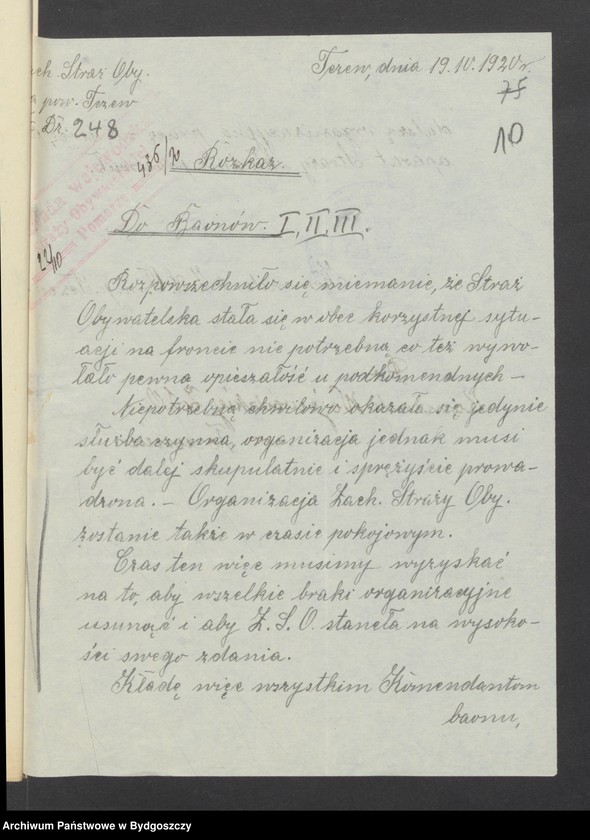 ch. Straż Oby.
pow. Tczew
Dz. 248
Tczew, dnia 19.10.1920r.
75
10
436/20 Rozkaz.
Do Baonów. I, II, III.
22/10
Rozpowszechniło się mniemanie, że Straż
Obywatelska stała się w obec korzystnej sytu-
acji na froncie nie potrzebną co też wywo-
łało pewną opieszałość u podkomendnych –
Niepotrzebną chwilowo okazała się jedynie
służba czynna, organizacja jednak musi
być dalej skupulatnie i sprężyście prowa-
dzona. – Organizacja Zach. Straży Oby.
zostanie także w czasie pokojowym.
Czas ten więc musimy wyzyskać
na to, aby wszelkie braki organizacyjne
usunąć i aby Z. S. O. stanęła na wysoko-
ści swego zdania.
Kładę więc wszystkim Komendantom
baonu,
Archiwum Państwowe w Bydgoszczy